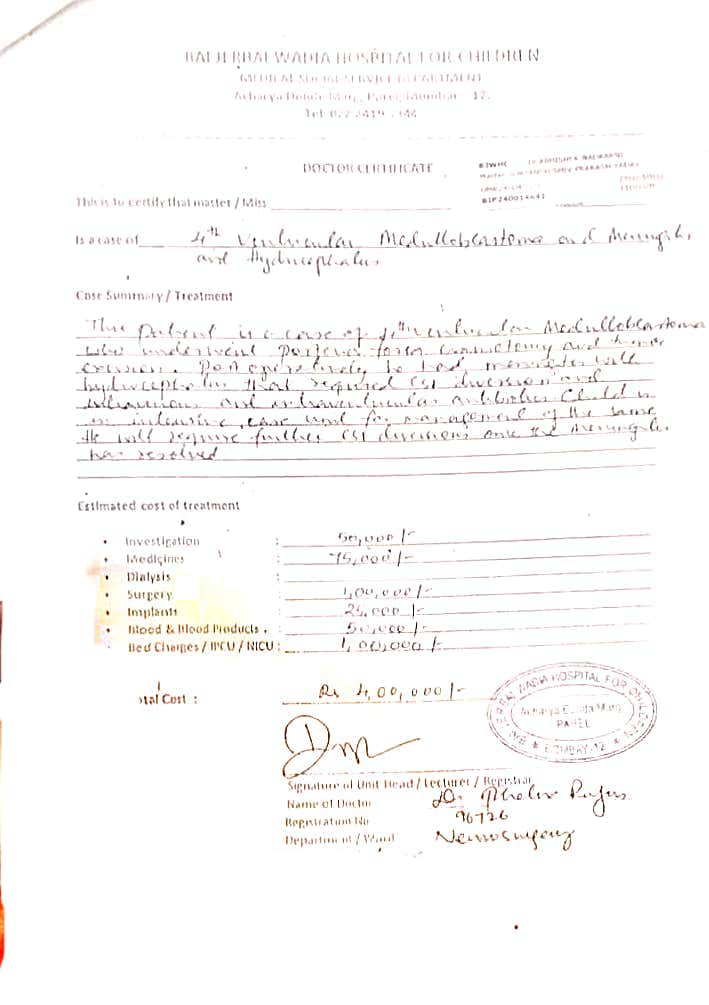 BAI JERBAI WADIA HOSPITAL FOR CHILDREN
MEDICAL SOCIAL SERVICE DEPARTMENT
Acharya Donde Marg, Parel, Mumbai - 12.
Tel: 022 2419
DOCTOR CERTIFICATE
BJWHC
PRAKASH YADAV
This is to certify that master / Miss
Is a case of 4th Ventricular Medulloblastoma and
and Hydrocephalus
Case Summary / Treatment
This patient is a case of 4th ventricular Medulloblastoma
who underwent fossa and
excision. Post operatively he had with
hydrocephalus that required diversion and
and intraventricular antibiotics. Child is
in intensive care unit for management of the same
He will require further diversions once the
has resolved
Estimated cost of treatment
• Investigation : 50,000/-
• Medicines : 75,000/-
• Dialysis :
• Surgery : 1,00,000/-
• Implants : 25,000/-
• Blood & Blood Products . : 50,000/-
• Bed Charges / IPCU / NICU : 1,00,000/-
otal Cost : Rs 4,00,000/-
BAI JERBAI WADIA HOSPITAL FOR CHILDREN
Acharya Donde Marg
PAREL
★ BOMBAY-12 ★
Signature of Unit Head / Lecturer / Registrar
Name of Doctor Dr.
Registration No 96726
Department / Ward Neurosurgery